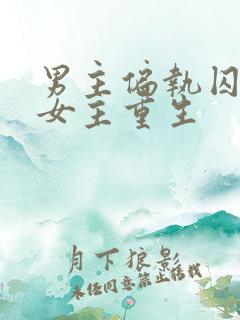 男主偏執囚
女主重生
月下狼影
未经同意禁止转载